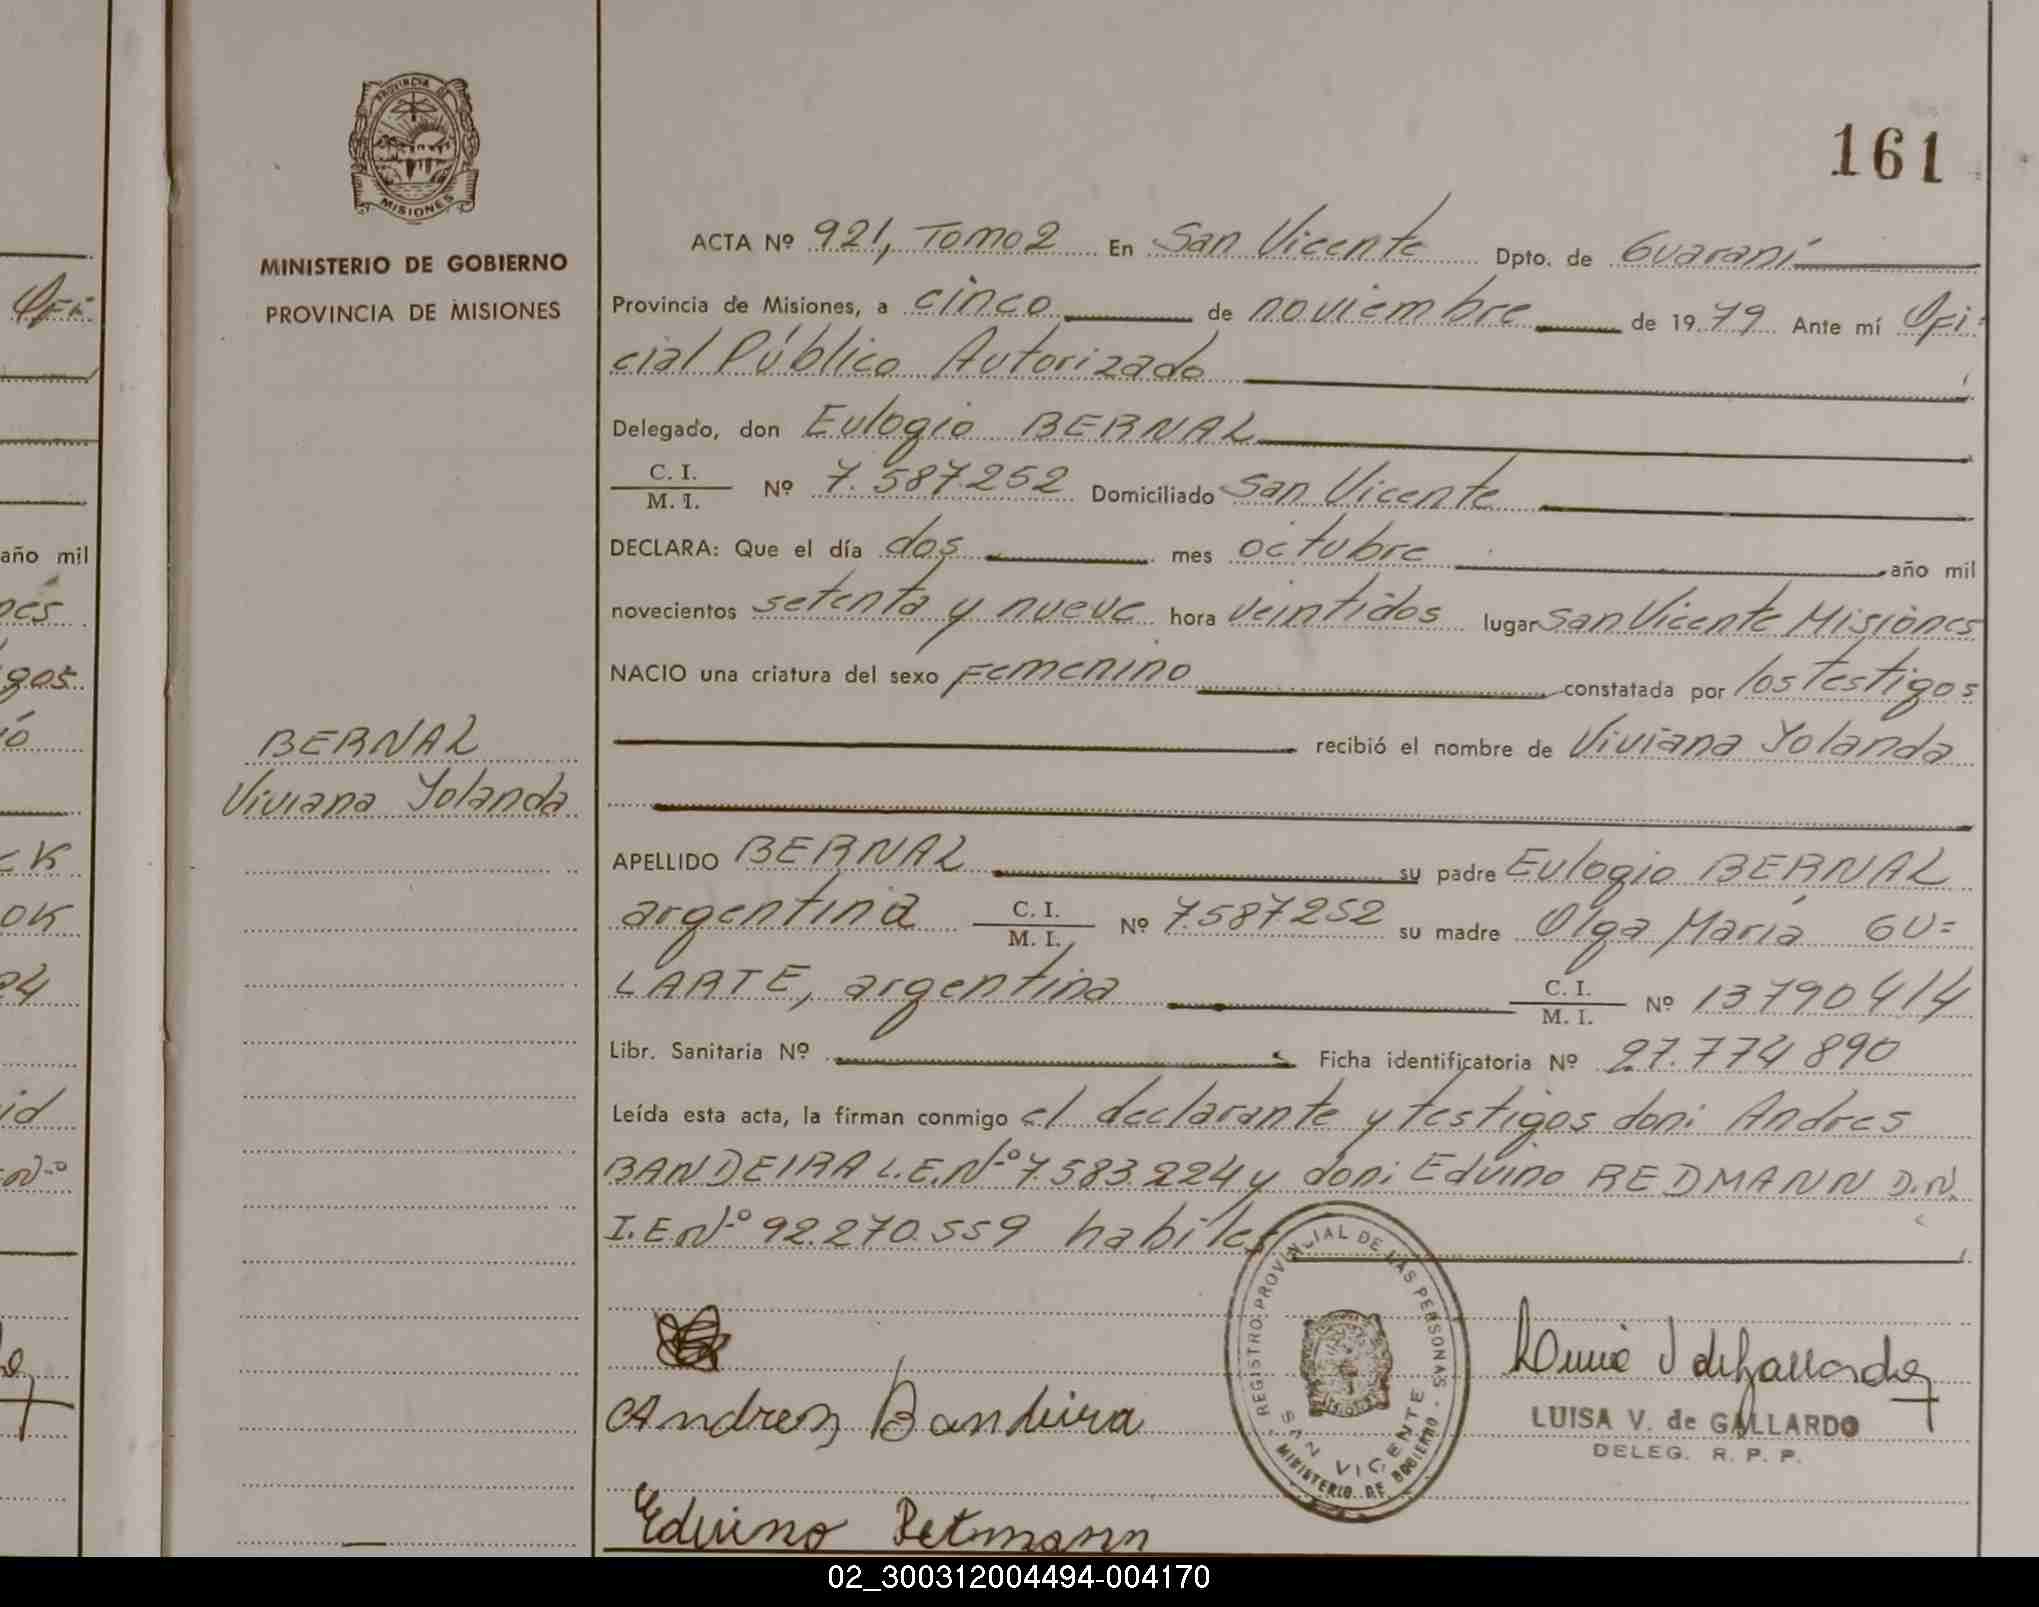 PROVINCIA DE
MISIONES
MINISTERIO DE GOBIERNO
PROVINCIA DE MISIONES
161
ACTA Nº 921, Tomo 2 En San Vicente Dpto. de Guaraní
Provincia de Misiones, a cinco de noviembre de 19 79 Ante mí Ofi=
cial Público Autorizado
Delegado, don Eulogio BERNAL
C. I.
M. I. Nº 7.587.252 Domiciliado San Vicente
DECLARA: Que el día dos mes octubre año mil
novecientos setenta y nueve hora veintidos lugar San Vicente Misiones
NACIO una criatura del sexo Femenino constatada por los testigos
recibió el nombre de Viviana Yolanda
BERNAL
Viviana Yolanda
APELLIDO BERNAL su padre Eulogio BERNAL
argentina C. I. M. I. Nº 7.587252 su madre Olga María GU=
LARTE, argentina C. I. M. I. Nº 13790414
Libr. Sanitaria Nº Ficha identificatoria Nº 27.774890
Leída esta acta, la firman conmigo el declarante y testigos don: Andres
BANDEIRA L.E.Nº 7.583.224 y don: Eduino REDMANN D.N.
I.E.Nº 92.270.559 habiles
REGISTRO PROVINCIAL DE LAS PERSONAS
SAN VICENTE
MINISTERIO DE GOBIERNO
Andres Bandeira
LUISA V. de GALLARDO
DELEG. R. P. P.
Eduino Retmann
año mil
02_300312004494-004170